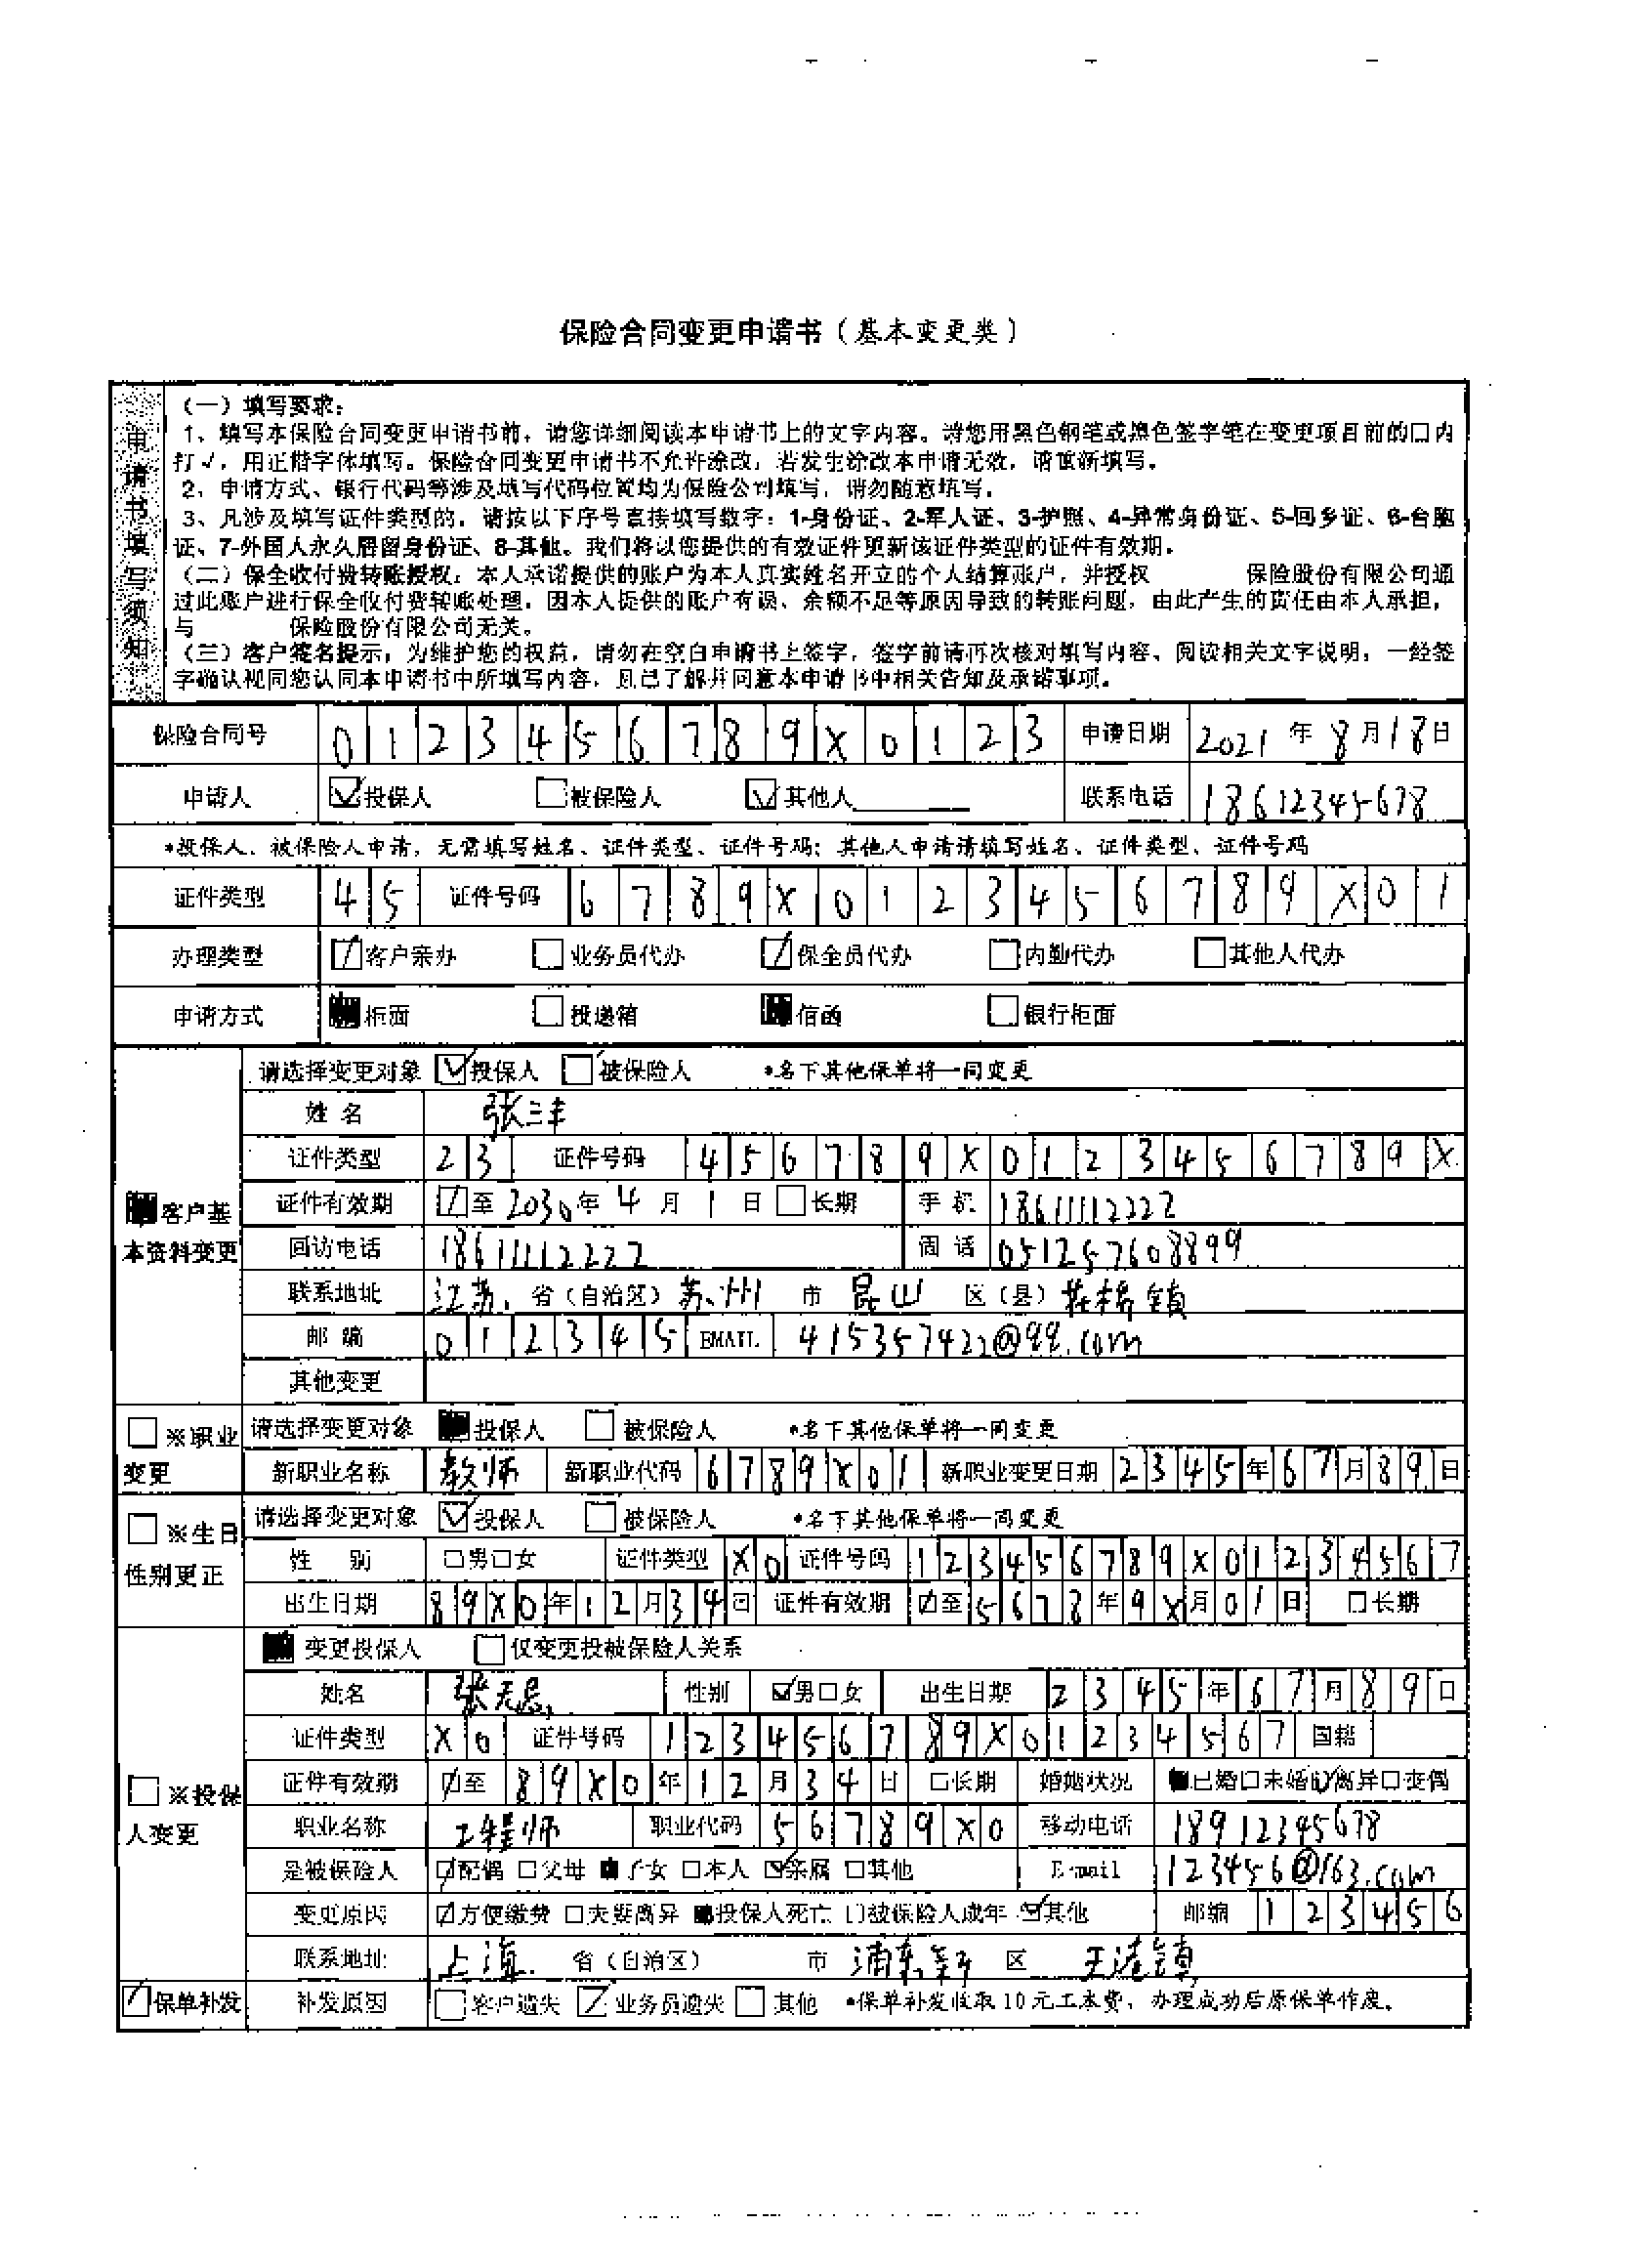 保险合同变更申请书（基本变更类）
申请书填写须知
（一）填写要求：
1、填写本保险合同变更申请书前，请您详细阅读本申请书上的文字内容。请您用黑色钢笔或黑色签字笔在变更项目前的口内
打√，用正楷字体填写。保险合同变更申请书不允许涂改，若发生涂改本申请无效，请重新填写。
2、申请方式、银行代码等涉及填写代码位置均为保险公司填写，请勿随意填写。
3、凡涉及填写证件类型的，请按以下序号直接填写数字：1-身份证、2-军人证、3-护照、4-异常身份证、5-回乡证、6-台胞
证、7-外国人永久居留身份证、8-其他。我们将以您提供的有效证件更新该证件类型的证件有效期。
（二）保全收付费转账授权：本人承诺提供的账户为本人真实姓名开立的个人结算账户，并授权 保险股份有限公司通
过此账户进行保全收付费转账处理，因本人提供的账户有误、余额不足等原因导致的转账问题，由此产生的责任由本人承担，
与 保险股份有限公司无关。
（三）客户签名提示，为维护您的权益，请勿在空白申请书上签字，签字前请再次核对填写内容、阅读相关文字说明，一经签
字确认视同您认同本申请书中所填写内容，且已了解并同意本申请书中相关告知及承诺事项。
保险合同号 0123456789X0123 申请日期 2021 年 8 月 18 日
申请人 ☑投保人 □被保险人 ☑其他人______ 联系电话 18612345678
*投保人、被保险人申请，无需填写姓名、证件类型、证件号码；其他人申请请填写姓名、证件类型、证件号码
证件类型 45 证件号码 6789X0123456789X01
办理类型 ☑客户亲办 □业务员代办 ☑保全员代办 □内勤代办 □其他人代办
申请方式 ■柜面 □投递箱 ■信函 □银行柜面
■客户基本资料变更
请选择变更对象 ☑投保人 □被保险人 *名下其他保单将一同变更
姓名 张三丰
证件类型 23 证件号码 456789X0123456789X
证件有效期 ☑至 2030 年 4 月 1 日 □长期 手机 18611112222
回访电话 18611112222 固话 051257608899
联系地址 江苏 省（自治区） 苏州 市 昆山 区（县） 花桥镇
邮编 012345 EMAIL 415357422@qq.com
其他变更
□※职业变更
请选择变更对象 ■投保人 □被保险人 *名下其他保单将一同变更
新职业名称 教师 新职业代码 6789X01 新职业变更日期 2345 年 67 月 89 日
□※生日性别更正
请选择变更对象 ☑投保人 □被保险人 *名下其他保单将一同变更
性别 □男□女 证件类型 X0 证件号码 123456789X01234567
出生日期 89X0 年 12 月 34 日 证件有效期 ☑至 5678 年 9X 月 01 日 □长期
□※投保人变更
■变更投保人 □仅变更投被保险人关系
姓名 张无忌 性别 ☑男□女 出生日期 2345 年 67 月 89 日
证件类型 X0 证件号码 123456789X01234567 国籍
证件有效期 ☑至 89X0 年 12 月 34 日 □长期 婚姻状况 ■已婚□未婚☑离异□丧偶
职业名称 工程师 职业代码 56789X0 移动电话 18912345678
是被保险人 ☑配偶 □父母 ■子女 □本人 ☑亲属 □其他 E-mail 123456@163.com
变更原因 ☑方便缴费 □夫妻离异 ■投保人死亡 □被保险人成年 ☑其他 邮编 123456
联系地址 上海 省（自治区） 市 浦东新 区 王港镇
☑保单补发 补发原因 □客户遗失 ☑业务员遗失 □其他 *保单补发收取 10 元工本费，办理成功后原保单作废。